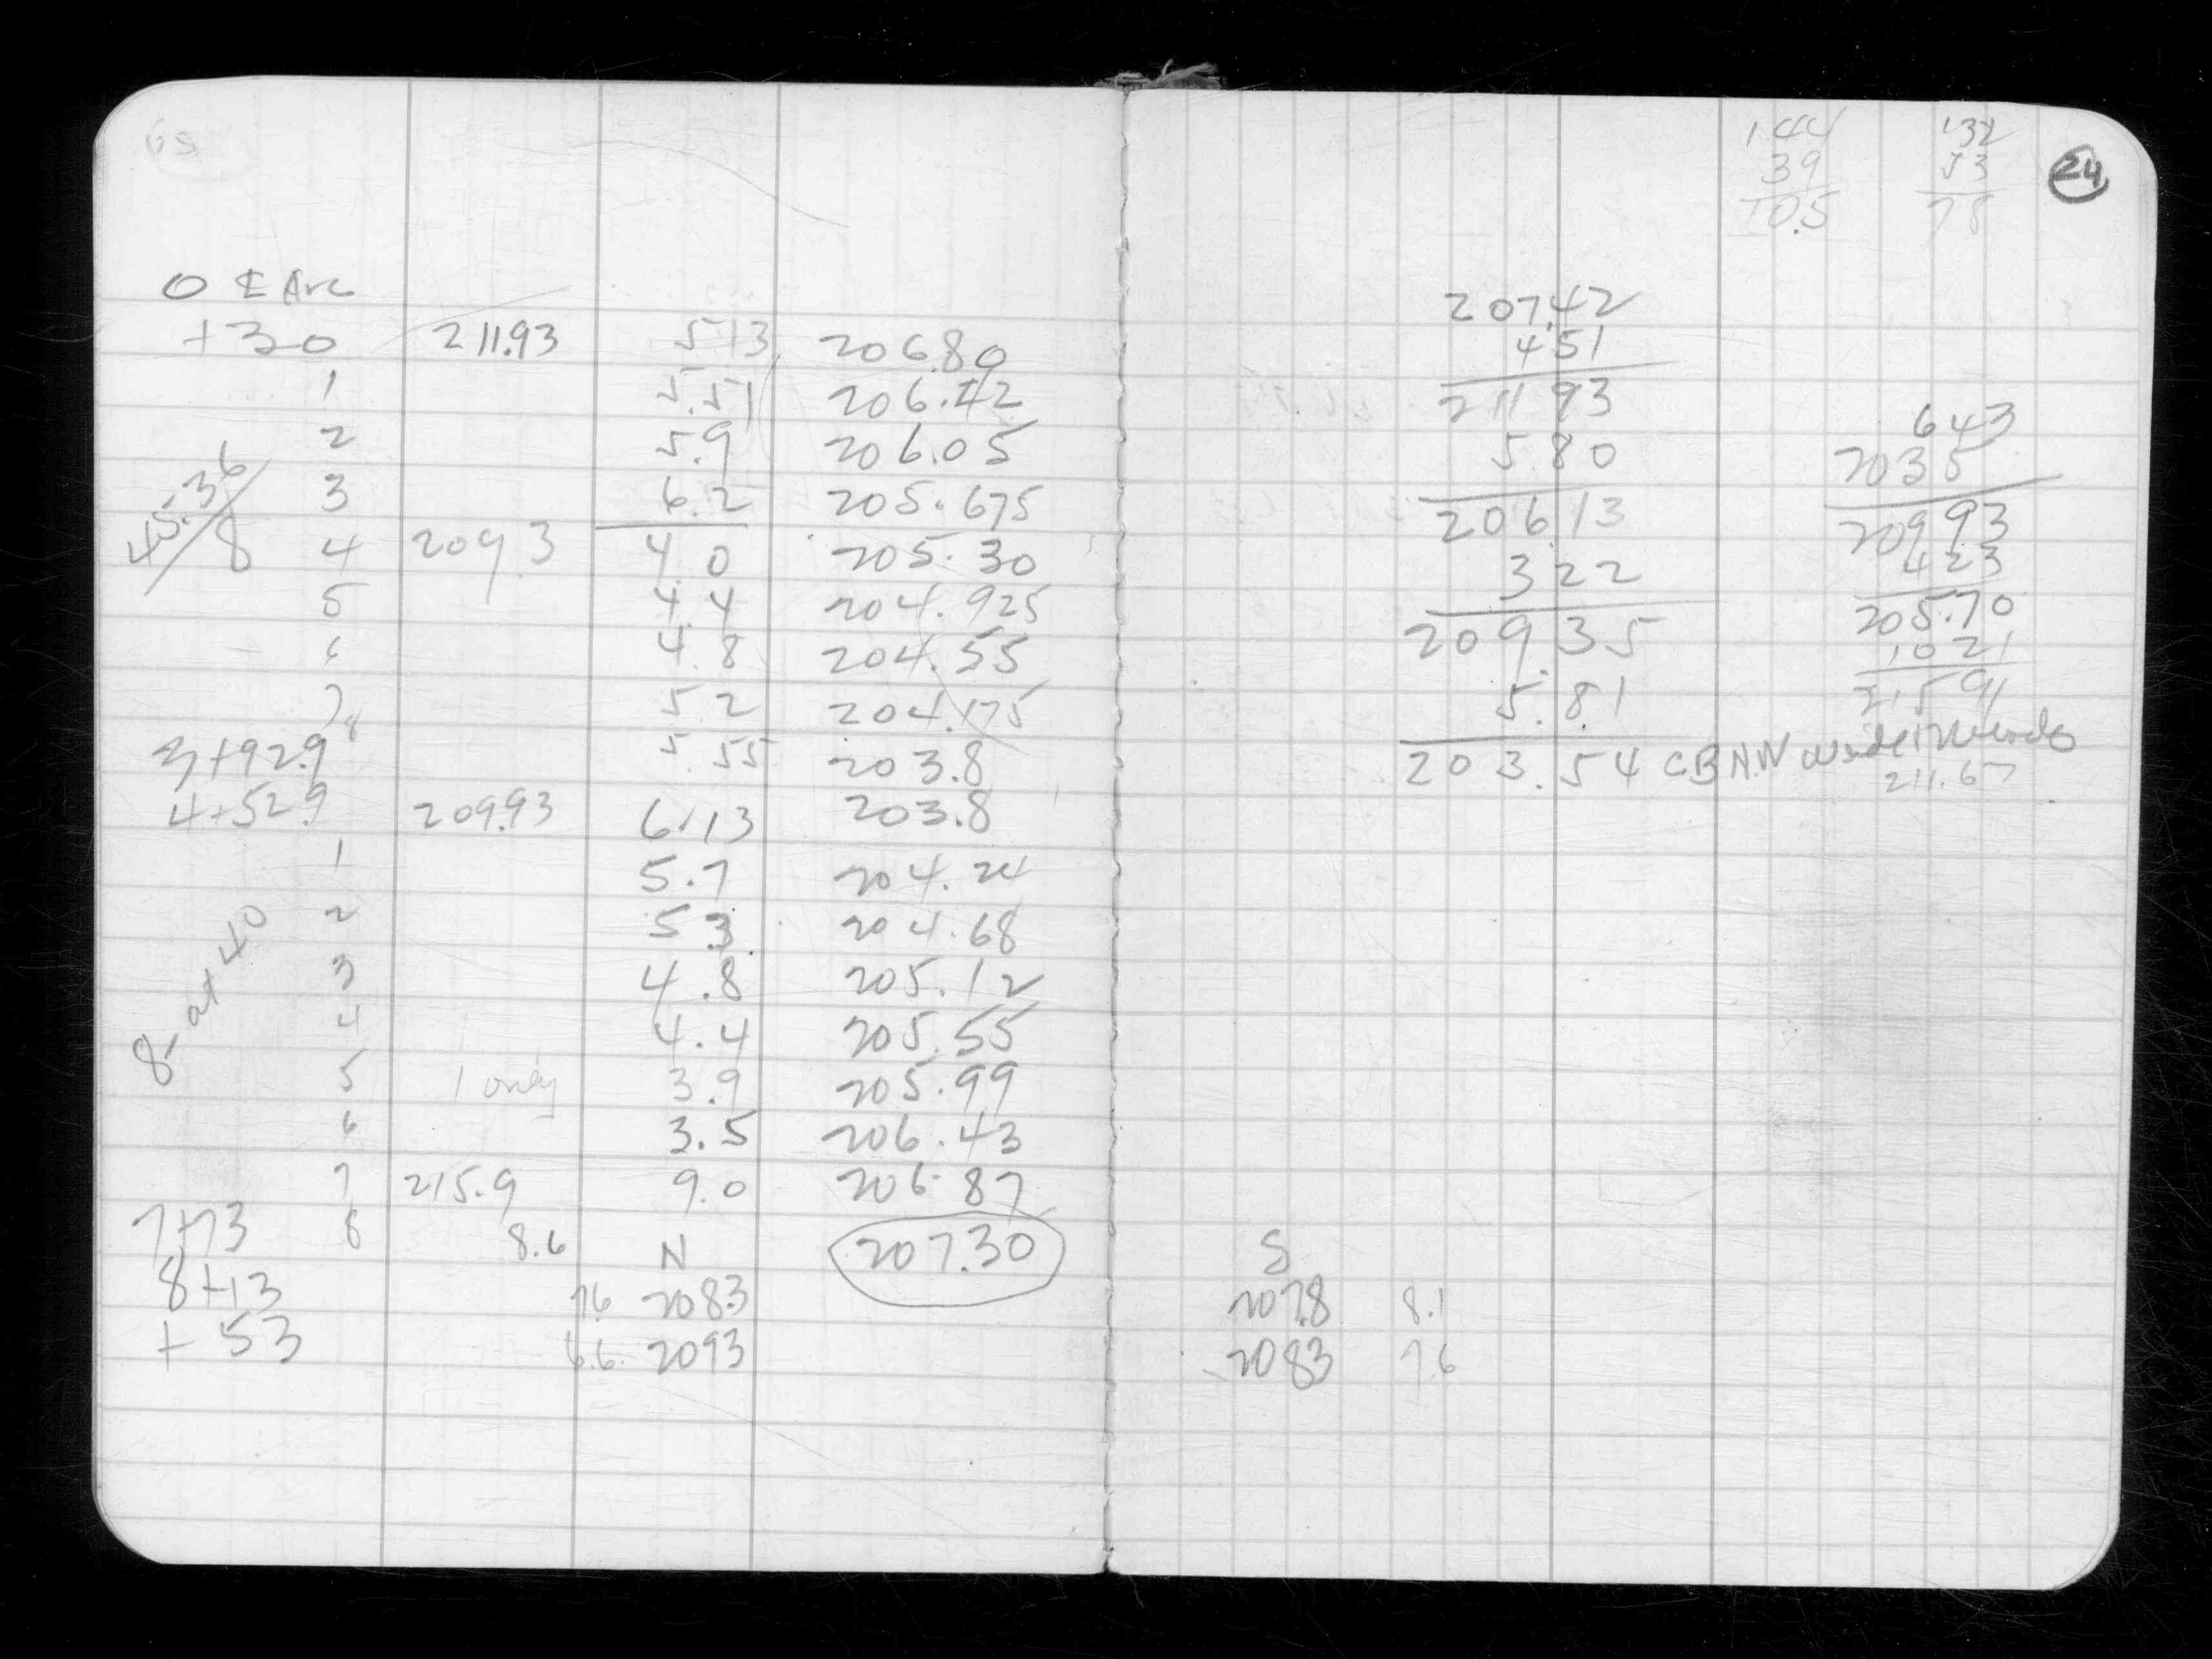 GS
0 E Arc
+30 211.93 5.13 206.80
1 5.51 206.42
2 5.9 206.05
3 6.2 205.675
45.36/8 4 209.3 4.0 205.30
5 4.4 204.925
6 4.8 204.55
7 5.2 204.175
8 5.55 203.8
3+92.9
4+52.9 209.93 6.13 203.8
1 5.7 204.24
2 5.3 204.68
8- at 40 3 4.8 205.12
4 4.4 205.55
5 1 only 3.9 205.99
6 3.5 206.43
7 215.9 9.0 206.87
7+73 8 8.6 N 207.30
8+13 7.6 208.3
+53 6.6 209.3
144 132 24
39 53
105 78
207.42
4 51
211 93
5 80
206 13
3 22
209.35
5.81
203.54 CB N.W
643
2035
209 93
4 23
205.70
10 21
215 91
211.67
S
207.8 8.1
208.3 7.6